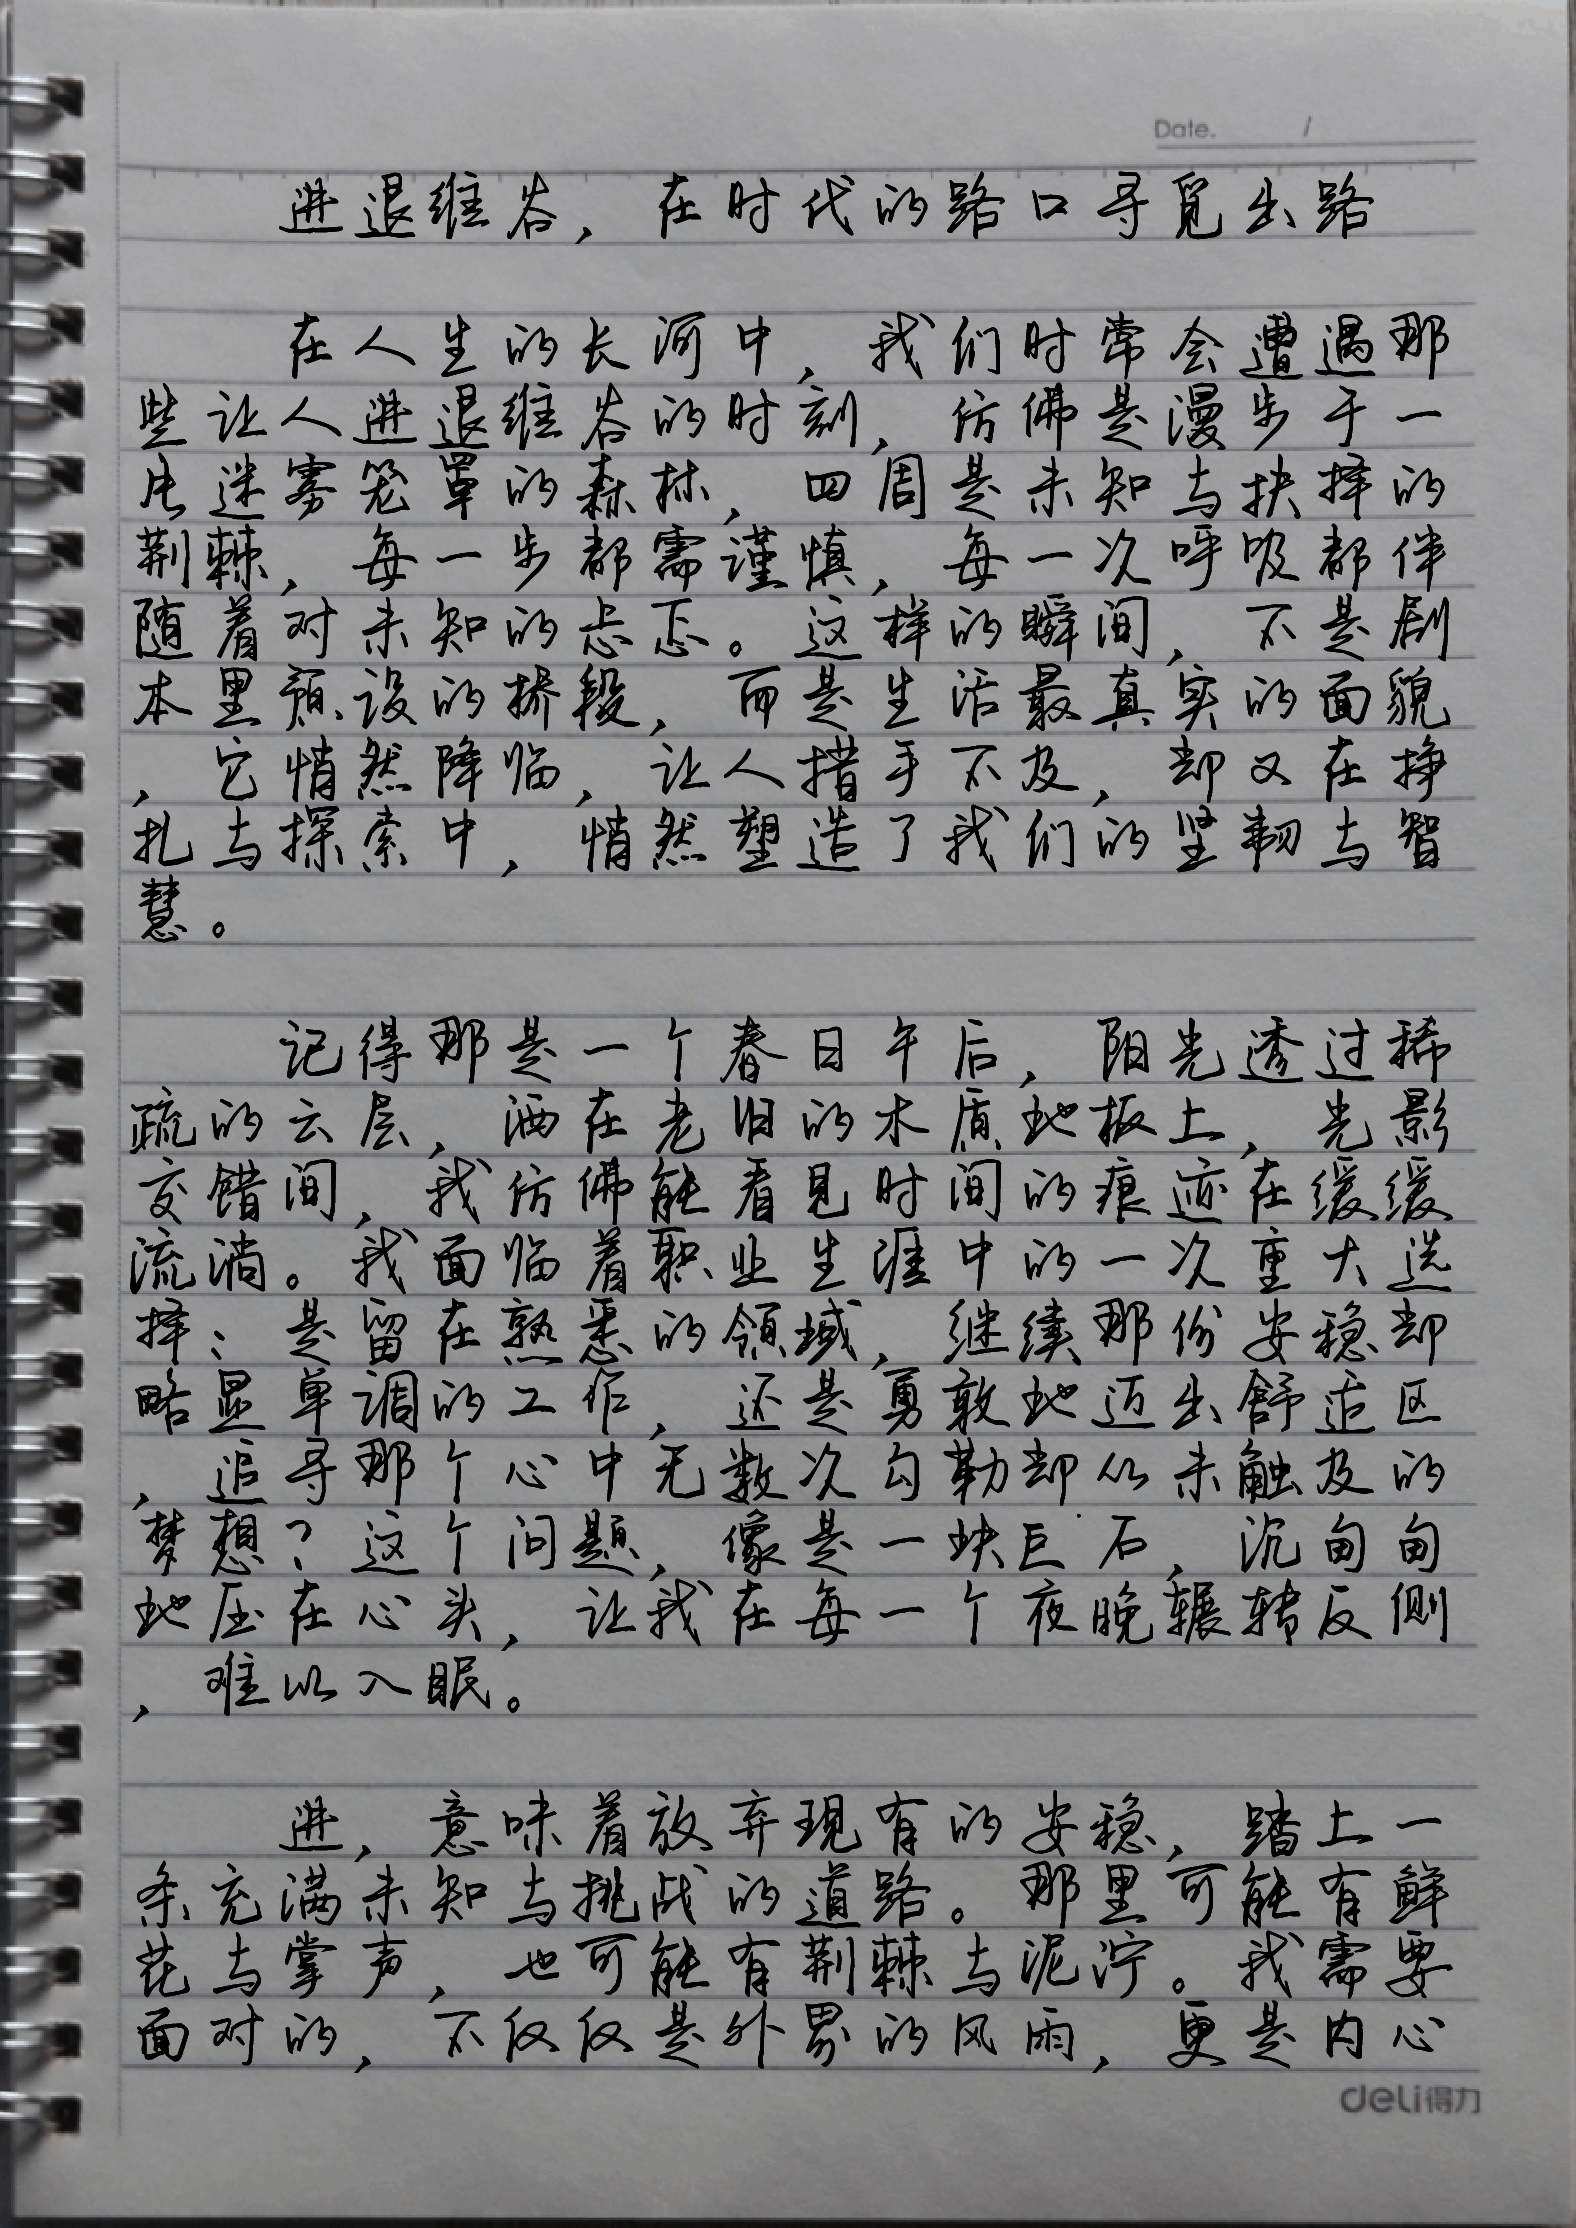 Date. /
进退维谷，在时代的路口寻觅出路
在人生的长河中，我们时常会遭遇那
些让人进退维谷的时刻，仿佛是漫步于一
片迷雾笼罩的森林，四周是未知与抉择的
荆棘，每一步都需谨慎，每一次呼吸都伴
随着对未知的忐忑。这样的瞬间，不是剧
本里预设的桥段，而是生活最真实的面貌
，它悄然降临，让人措手不及，却又在挣
扎与探索中，悄然塑造了我们的坚韧与智
慧。
记得那是一个春日午后，阳光透过稀
疏的云层，洒在老旧的木质地板上，光影
交错间，我仿佛能看见时间的痕迹在缓缓
流淌。我面临着职业生涯中的一次重大选
择：是留在熟悉的领域，继续那份安稳却
略显单调的工作，还是勇敢地迈出舒适区
，追寻那个心中无数次勾勒却从未触及的
梦想？这个问题，像是一块巨石，沉甸甸
地压在心头，让我在每一个夜晚辗转反侧
，难以入眠。
进，意味着放弃现有的安稳，踏上一
条充满未知与挑战的道路。那里可能有鲜
花与掌声，也可能有荆棘与泥泞。我需要
面对的，不仅仅是外界的风雨，更是内心
deli得力